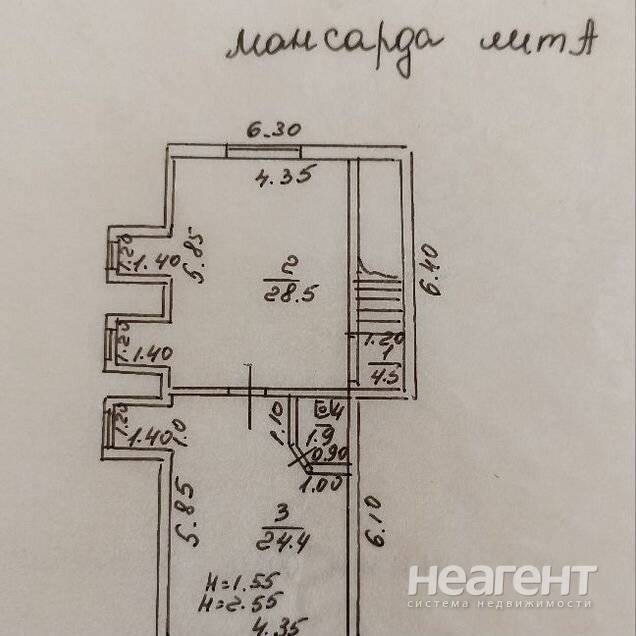 мансарда литА
6.30
4.35
5.85
6.40
1.20
1.40
2
28.5
1.20
1.40
1.20
1
4.5
1.20
1.40
1.0
1.10
4
1.9
0.90
1.00
5.85
3
24.4
6.10
H=1.55
H=2.55
4.35
неагент
система недвижимости